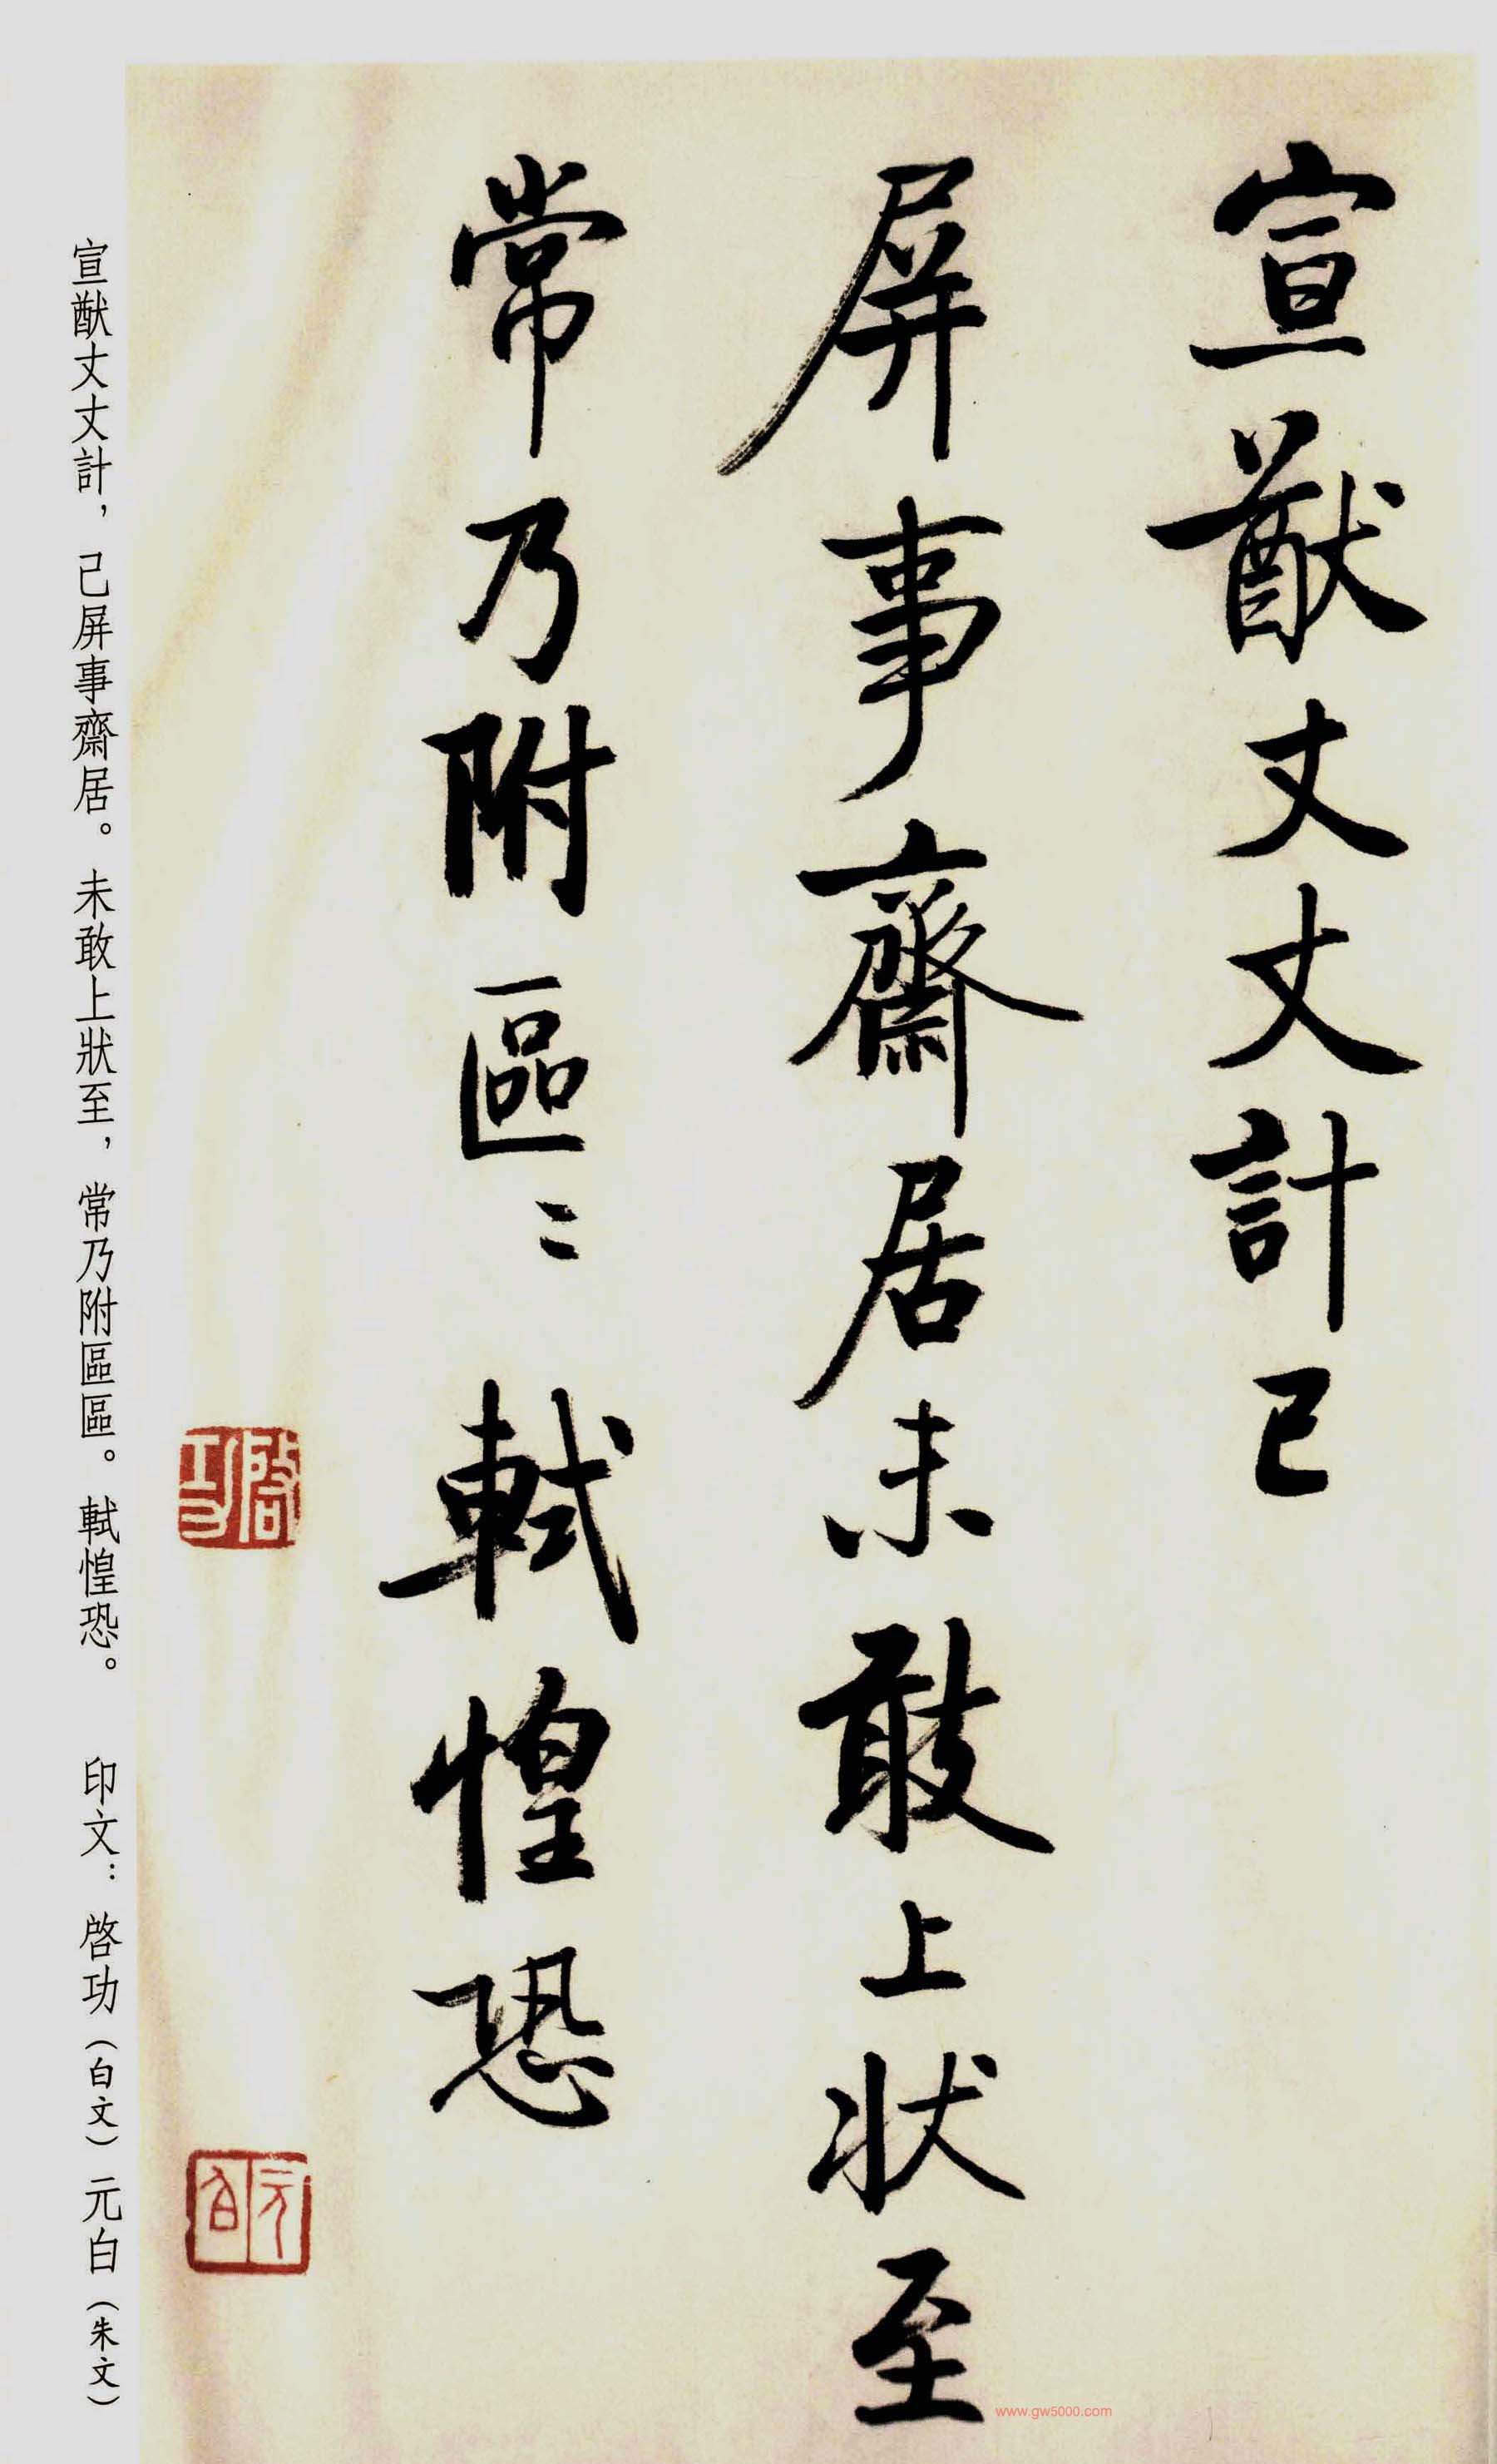 宣猷丈丈計已
屏事齋居未敢上狀至
常乃附區〻軾惶恐
啓功
元白
宣猷丈丈計，已屏事齋居。未敢上狀至，常乃附區區。軾惶恐。 印文：啓功（白文）元白（朱文）
www.gw5000.com